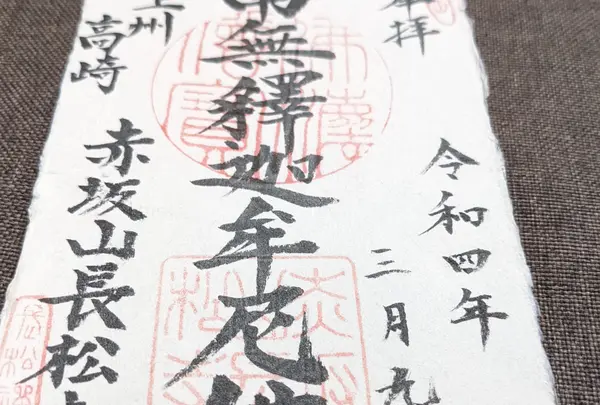 奉拝
令和四年
三月九
南無釋迦牟尼佛
上州
高崎
赤坂山長松寺